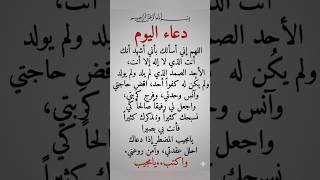 دعاء اليوم
اللهم إني أسألك بأني أشهد أنك
أنت الذي لا إله إلا أنت،
الأحد الصمد الذي لم يلد ولم يولد
ولم يكن له كفواً أحد، اقضِ حاجتي
وآنس وحدتي، وفرج كربتي،
واجعل لي رفيقاً صالحاً كي
نسبحك كثيراً ونذكرك كثيراً
فأنت بي بصيرا
يامجيب المضطر إذا دعاك
احلل عقدتي، وآمن روعتي.
واكتب..يامجيب